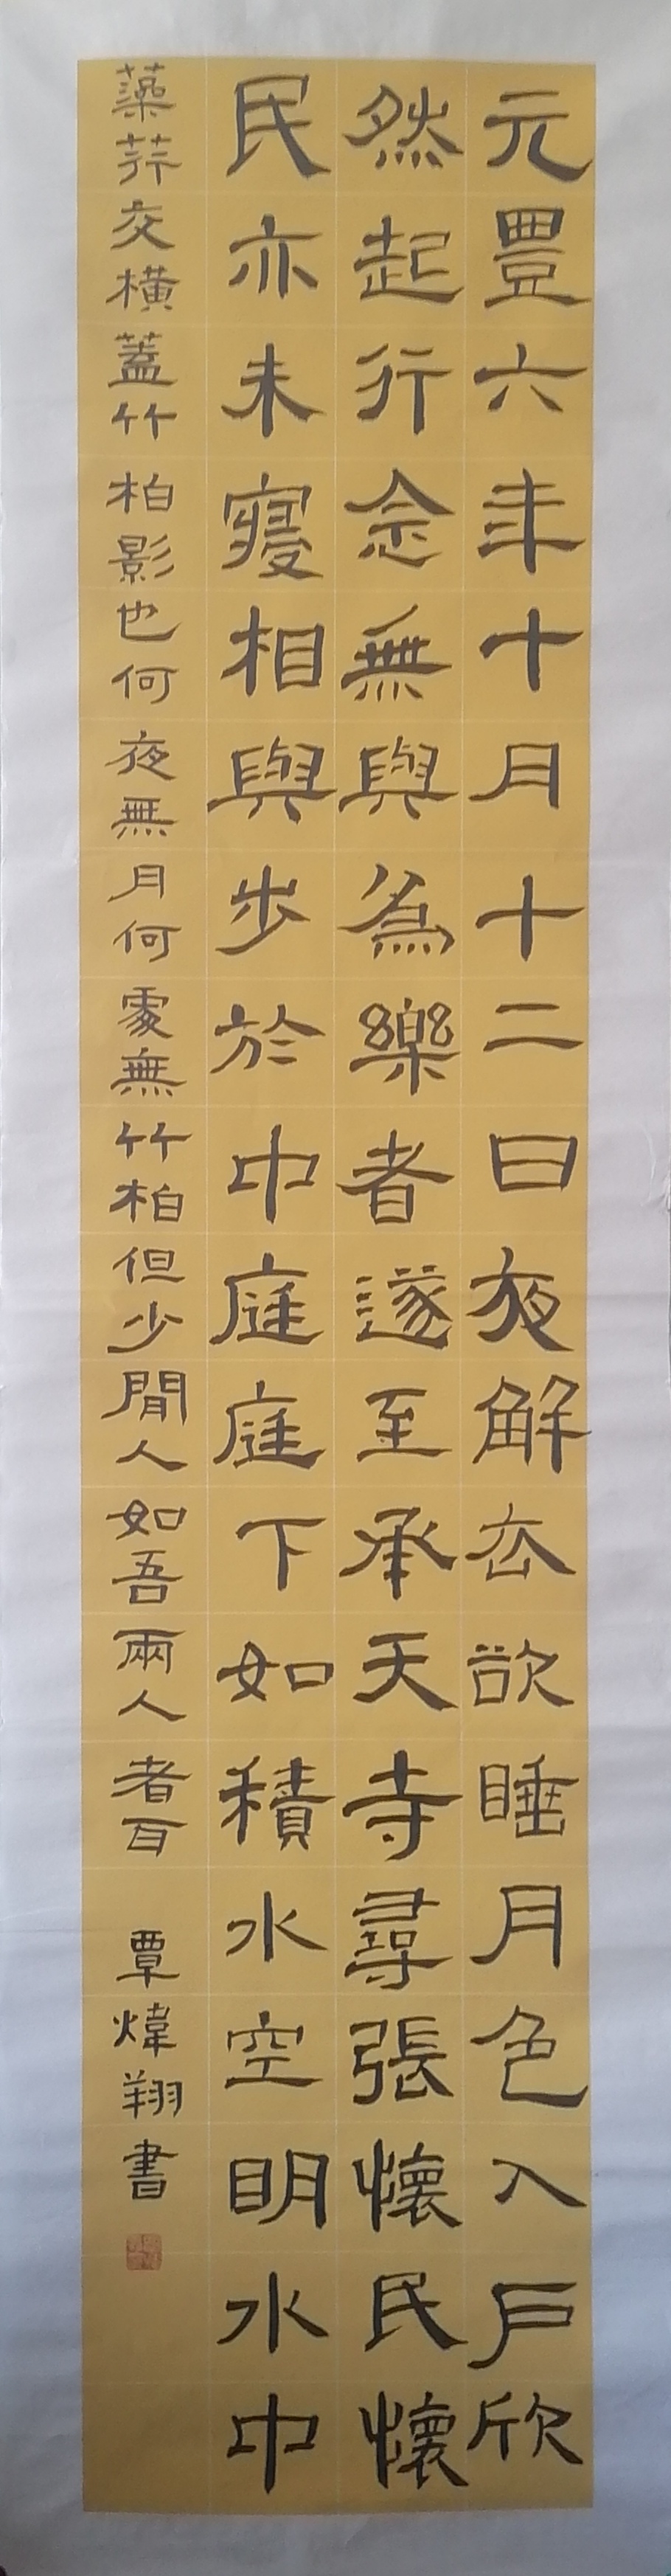 元豊六年十月十二日夜解衣欲睡月色入戶欣
然起行念無與為樂者遂至承天寺尋張懷民懷
民亦未寑相與步於中庭庭下如積水空明水中
藻荇交橫蓋竹柏影也何夜無月何處無竹柏但少閒人如吾兩人者耳 覃煒翔書